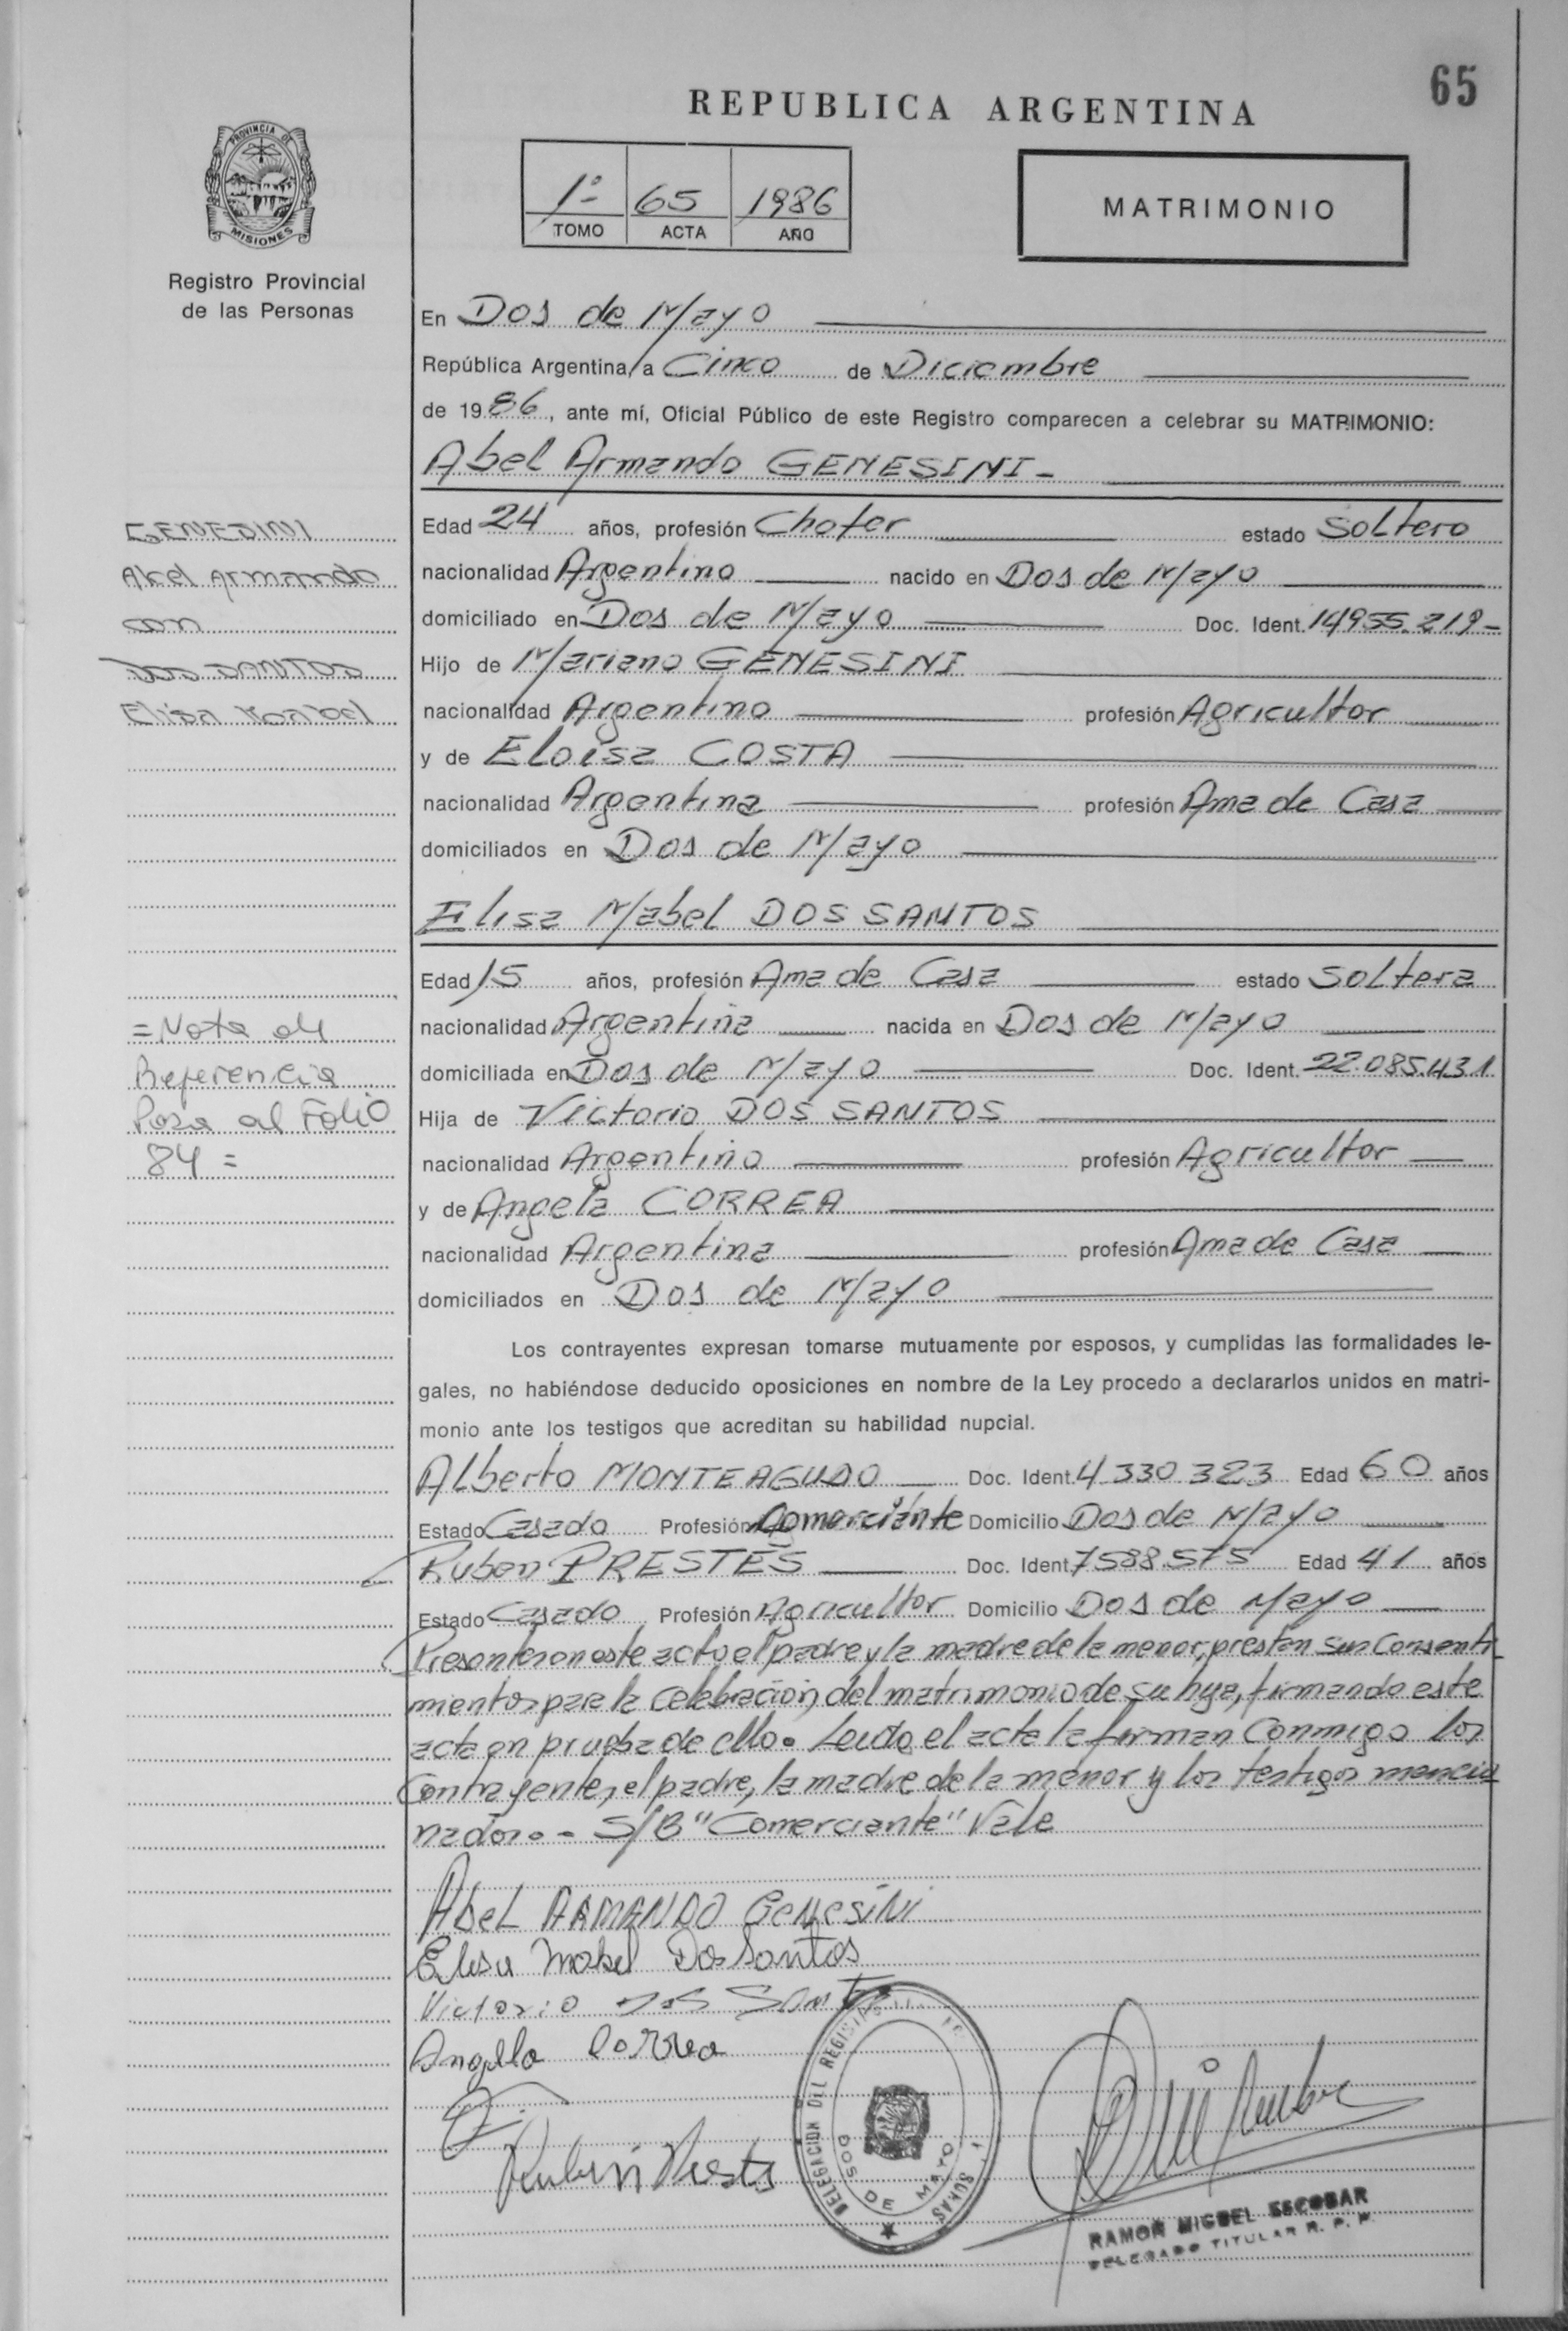 65
REPUBLICA ARGENTINA
1º 65 1986
TOMO ACTA AÑO
MATRIMONIO
PROVINCIA DE MISIONES
Registro Provincial
de las Personas
En Dos de Mayo
República Argentina, a Cinco de Diciembre
de 1986, ante mí, Oficial Público de este Registro comparecen a celebrar su MATRIMONIO:
Abel Armando GENESINI -
Edad 24 años, profesión Chofer estado Soltero
nacionalidad Argentino nacido en Dos de Mayo
domiciliado en Dos de Mayo Doc. Ident. 14955.219-
Hijo de Mariano GENESINI
nacionalidad Argentino profesión Agricultor
y de Eloisa COSTA
nacionalidad Argentina profesión Ama de Casa
domiciliados en Dos de Mayo
Elisa Mabel DOS SANTOS
Edad 15 años, profesión Ama de Casa estado Soltera
nacionalidad Argentina nacida en Dos de Mayo
domiciliada en Dos de Mayo Doc. Ident. 22.085.431
Hija de Victorio DOS SANTOS
nacionalidad Argentino profesión Agricultor
y de Angela CORREA
nacionalidad Argentina profesión Ama de Casa
domiciliados en Dos de Mayo
Los contrayentes expresan tomarse mutuamente por esposos, y cumplidas las formalidades le-
gales, no habiéndose deducido oposiciones en nombre de la Ley procedo a declararlos unidos en matri-
monio ante los testigos que acreditan su habilidad nupcial.
Alberto MONTEAGUDO Doc. Ident. 4330.323 Edad 60 años
Estado Casado Profesión Comerciante Domicilio Dos de Mayo
Ruben PRESTES Doc. Ident. 7588575 Edad 41 años
Estado Casado Profesión Agricultor Domicilio Dos de Mayo
Presente en este acto el padre y la madre de la menor, prestan sus Consenti
mientos para la celebración del matrimonio de su hija, firmando este
acta en prueba de ello. Leida el acta la firman Conmigo los
Contrayente, el padre, la madre de la menor y los testigos mencio
nados.- S/B "Comerciante" Vale
Abel ARMANDO Genesini
Elisa Mabel Dos Santos
Victorio
Angela Correa
Ruben Prestes
DELEGACION DEL REGISTRO
DOS DE MAYO
RAMON MIGUEL ESCOBAR
DELEGADO TITULAR R. P. P.
GENESINI
Abel Armando
con
DOS SANTOS
Elisa Mabel
=Nota de
Referencia
Pasa al Folio
84=